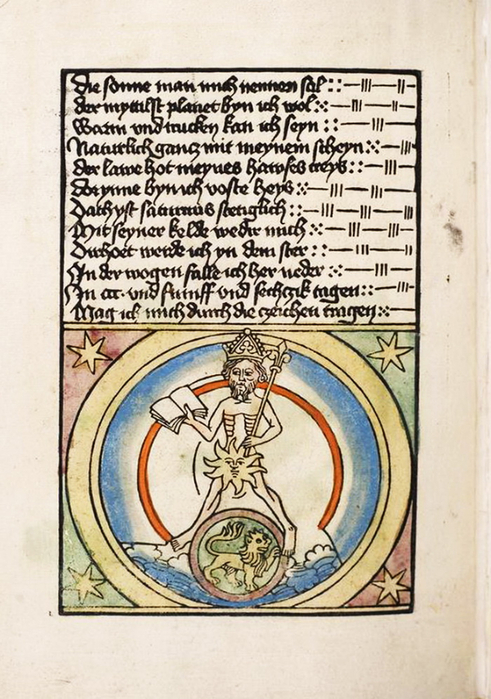 Die sonne man mich nennen sol
der myttilst planet byn ich wol
Warm vnd trucken kan ich seyn
Naturlich gancz mit meynem scheyn
der lawe hot meynes hawses creys
dorynne byn ich voste heys
Doch yst saturnus stetiglich
Mit seyner kelde wedir mich
Dirhoet werde ich yn dem ster
In der wogen falle ich her neder
In ccc vnd funff vnd sechczik tagen
Mag ich mich durch die czeichen tragen